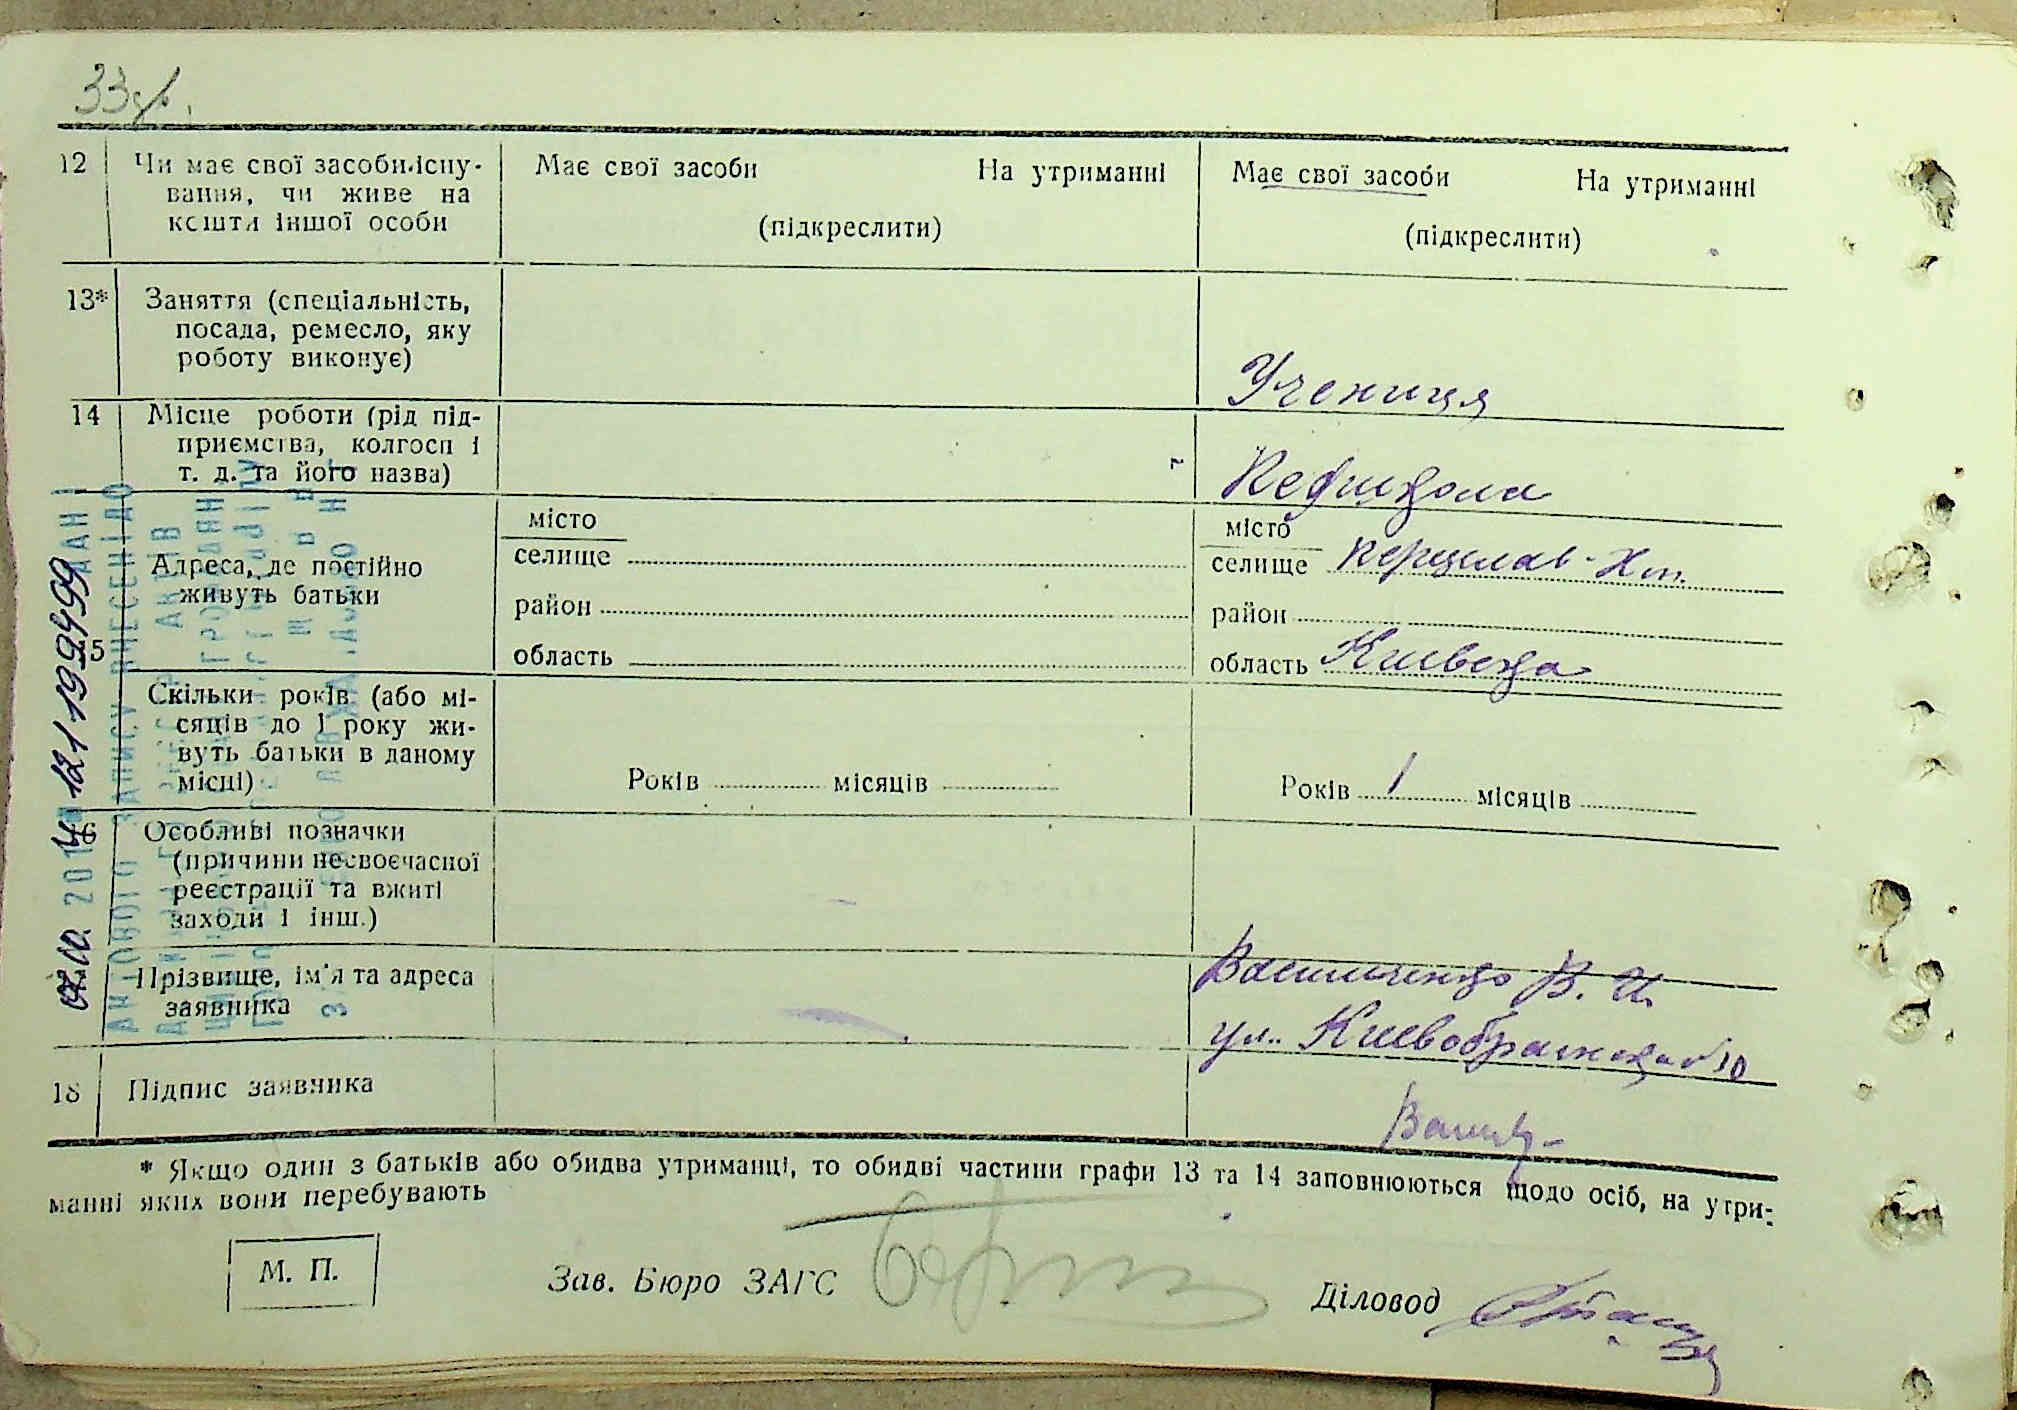 33
12 Чи має свої засоби існу-
вання, чи живе на
кошти іншої особи
Має свої засоби На утриманні
(підкреслити)
Має свої засоби На утриманні
(підкреслити)
13* Заняття (спеціальність,
посада, ремесло, яку
роботу виконує)
Учениця
14 Місце роботи (рід під-
приємства, колгосп і
т. д. та його назва)
Педшкола
5 Адреса, де постійно
живуть батьки
місто
селище
район
область
місто
селище Переяслав-Хм.
район
область Киевска
Скільки років (або мі-
сяців до 1 року жи-
вуть батьки в даному
місці)
Років місяців
Років 1 місяців
6 Особливі позначки
(причини несвоєчасної
реєстрації та вжиті
заходи і інш.)
Прізвище, ім'я та адреса
заявника
Василченко В. И.
ул. Киевобрамская 10
18 Підпис заявника
* Якщо один з батьків або обидва утриманці, то обидві частини графи 13 та 14 заповнюються щодо осіб, на утри-
манні яких вони перебувають
М. П.
Зав. Бюро ЗАГС
Діловод